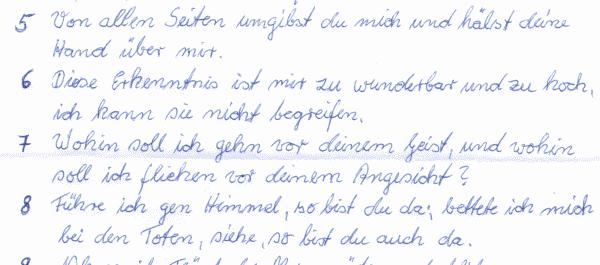 5 Von allen Seiten umgibst du mich und hälst deine
Hand über mir.
6 Diese Erkenntnis ist mir zu wunderbar und zu hoch,
ich kann sie nicht begreifen.
7 Wohin soll ich gehn vor deinem Geist, und wohin
soll ich fliehen vor deinem Angesicht?
8 Führe ich gen Himmel, so bist du da; bettete ich mich
bei den Toten, siehe, so bist du auch da.